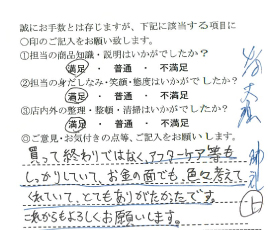 誠にお手数とは存じますが、下記に該当する項目に
○印のご記入をお願い致します。
①担当の商品知識・説明はいかがでしたか?
満足 ・ 普通 ・ 不満足
②担当の身だしなみ・笑顔・態度はいかがでしたか?
満足 ・ 普通 ・ 不満足
③店内外の整理・整頓・清掃はいかがでしたか?
満足 ・ 普通 ・ 不満足
◎ご意見・お気付きの点等、ご記入をお願いします。
買って終わりではなく、アフターケア等も
しっかりしていて、お金の面でも、色々考えて
くれていて、とてもありがたかったです。
これからもよろしくお願いします。